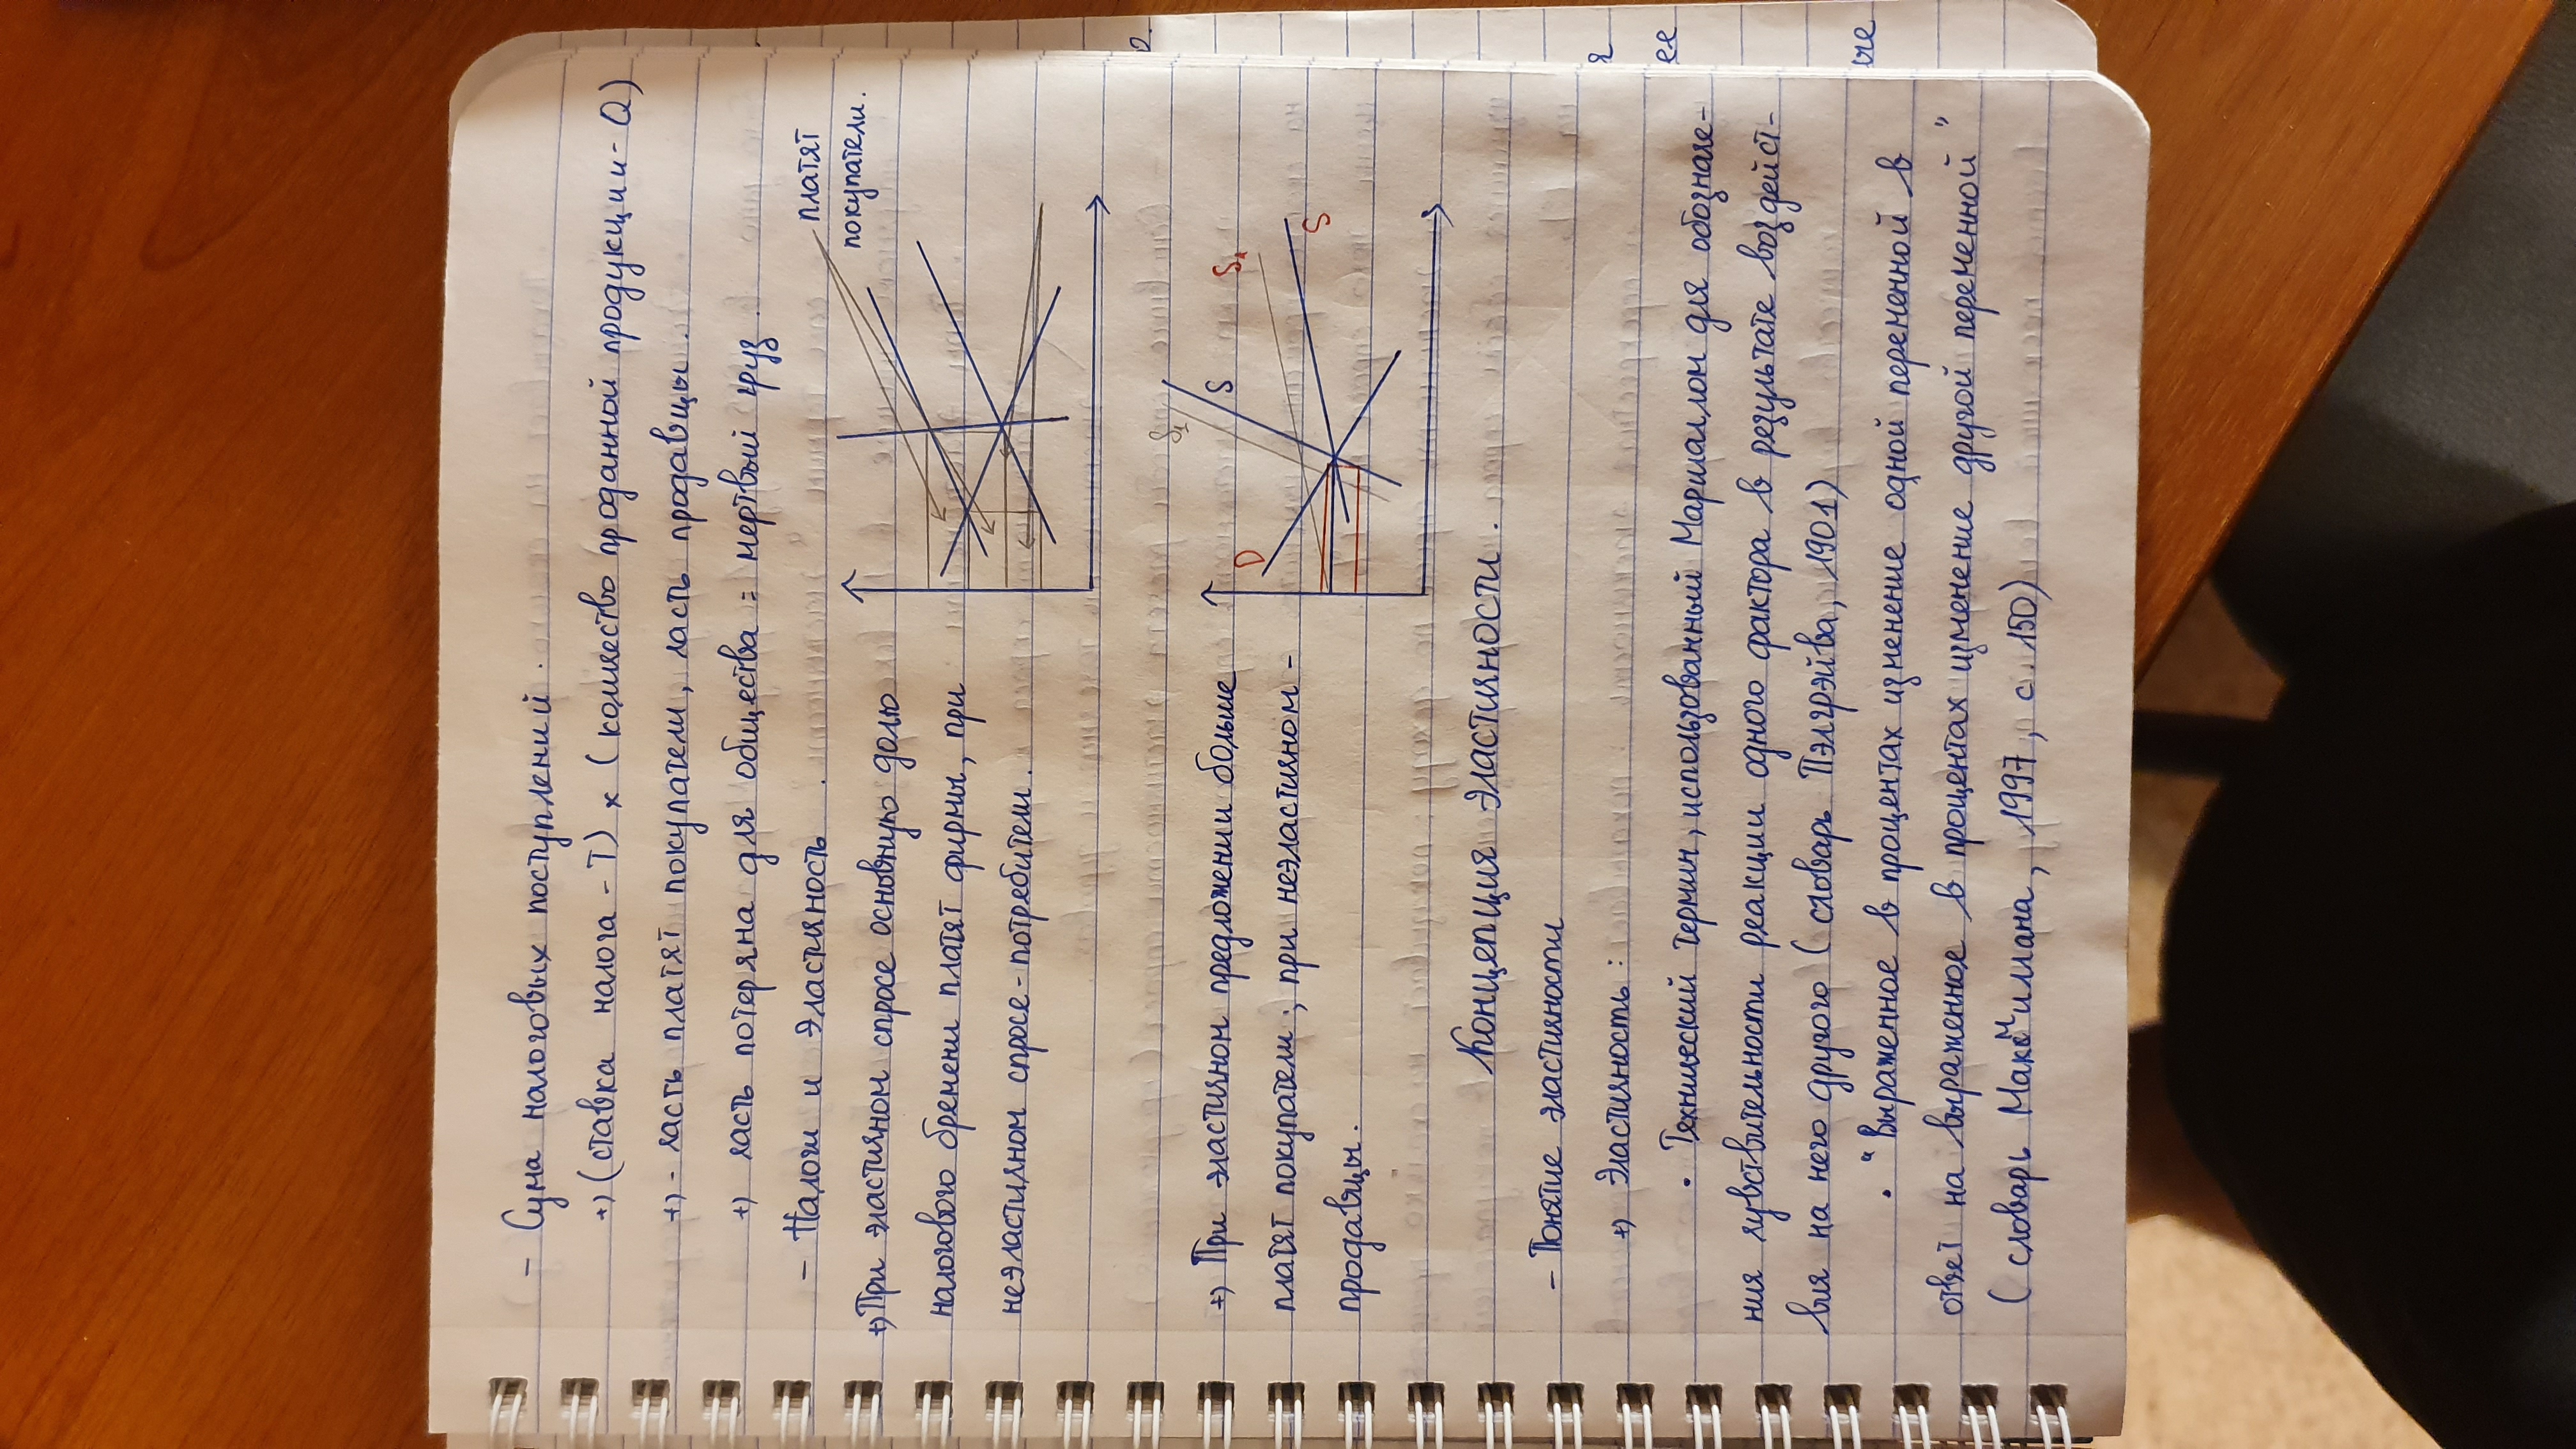 - Сума налоговых поступлений.
+) (ставка налога - T) x (количество проданной продукции - Q)
+) - часть платят покупатели, часть продавцы.
+) часть потеряна для общества = мертвый груз.
- Налоги и эластичность.
платят
покупатели.
+) При эластичном спросе основную долю
налогового бремени платят фирмы, при
неэластичном спросе - потребители.
S1
S
S1
D
S
+) При эластичном предложении больше
платят покупатели; при неэластичном -
продавцы.
Концепция эластичности.
- Понятие эластичности
+) Эластичность:
• Технический термин, использованный Маршаллом для обозначе-
ния чувствительности реакции одного фактора в результате воздейст-
вия на него другого (словарь Пэлгрэйва, 1901)
• "Выраженное в процентах изменение одной переменной в
ответ на выраженное в процентах изменение другой переменной"
(словарь Макмиллана, 1997, с. 150)
я
ее
ые